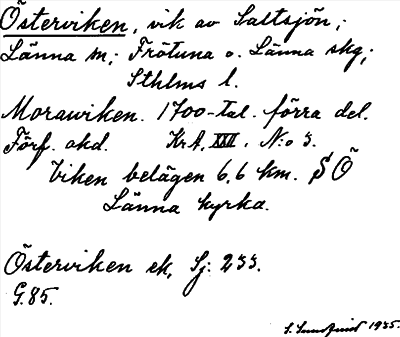 Österviken, vik av Saltsjön,;
Länna sn,; Frötuna o. Länna skg,;
Sthlms l.
Morawiken. 1700-tal. förra del.
Förf. okd. KrA, XVI. N:o 3.
Viken belägen 6,6 km. SÖ
Länna kyrka.
Österviken ek, Sj: 233.
G.85.
1935.